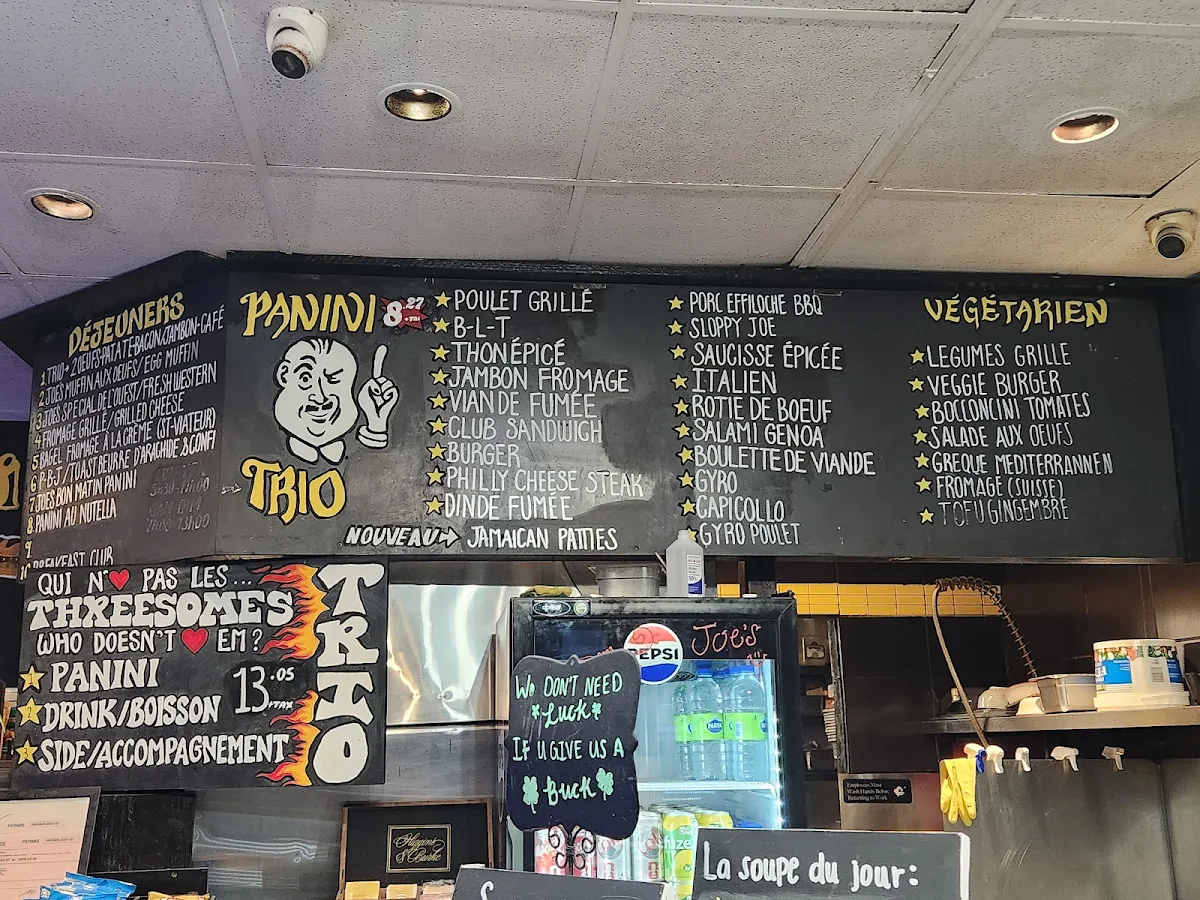 DÉJEUNERS
1 TRIO→2 OEUFS-PATATE-BACON/JAMBON-CAFÉ
2 JOES MUFFIN AUX OEUFS/EGG MUFFIN
3 JOES SPECIAL DEL'OUEST/FRESH WESTERN
4 FROMAGE GRILLÉ/GRILLED CHEESE
5 BAGEL FROMAGE À LA CRÈME (ST-VIATEUR)
6 P-B-J/TOAST BEURRE D'ARACHIDE & CONFI
7 JOES BON MATIN PANINI
8 PANINI AU NUTELLA
9
10 BREAKFAST CLUB
PANINI 8.27
TRIO
POULET GRILLÉ
B-L-T
THON ÉPICÉ
JAMBON FROMAGE
VIANDE FUMÉE
CLUB SANDWICH
BURGER
PHILLY CHEESE STEAK
DINDE FUMÉE
NOUVEAU JAMAICAN PATTIES
PORC EFFILOCHE BBQ
SLOPPY JOE
SAUCISSE ÉPICÉE
ITALIEN
ROTIE DE BOEUF
SALAMI GENOA
BOULETTE DE VIANDE
GYRO
CAPICOLLO
GYRO POULET
VÉGÉTARIEN
LEGUMES GRILLE
VEGGIE BURGER
BOCCONCINI TOMATES
SALADE AUX OEUFS
GREQUE MEDITERRANNEN
FROMAGE (SUISSE)
TOFU GINGEMBRE
QUI N'❤ PAS LES...
THREESOMES
WHO DOESN'T ❤ EM?
1 PANINI
2 DRINK/BOISSON
3 SIDE/ACCOMPAGNEMENT
13.05
+TAX
TRIO
PEPSI
Joe's
WE DON'T NEED
Luck
IF U GIVE US A
Buck
Higgins
& Burke
Employees Must
Wash Hands Before
Returning to Work
La soupe du jour:
PERMIS